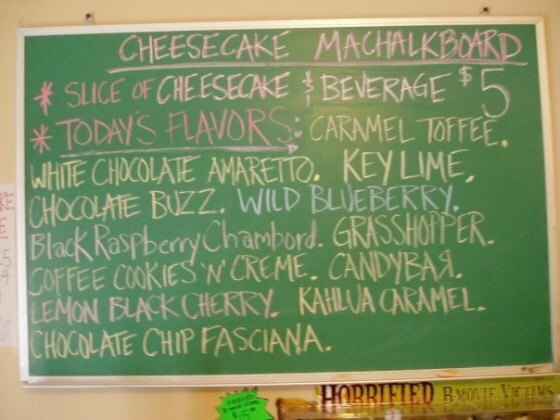 CHEESECAKE MACHALKBOARD
* SLICE OF CHEESECAKE & BEVERAGE $5
* TODAY'S FLAVORS: CARAMEL TOFFEE.
WHITE CHOCOLATE AMARETTO. KEY LIME.
CHOCOLATE BUZZ. WILD BLUEBERRY.
Black Raspberry Chambord. GRASSHOPPER.
COFFEE COOKIES 'N' CREME. CANDYBAR.
LEMON BLACK CHERRY. KAHLUA CARAMEL.
CHOCOLATE CHIP FASCIANA.
HORRIFIED B-MOVIE VICTIMS